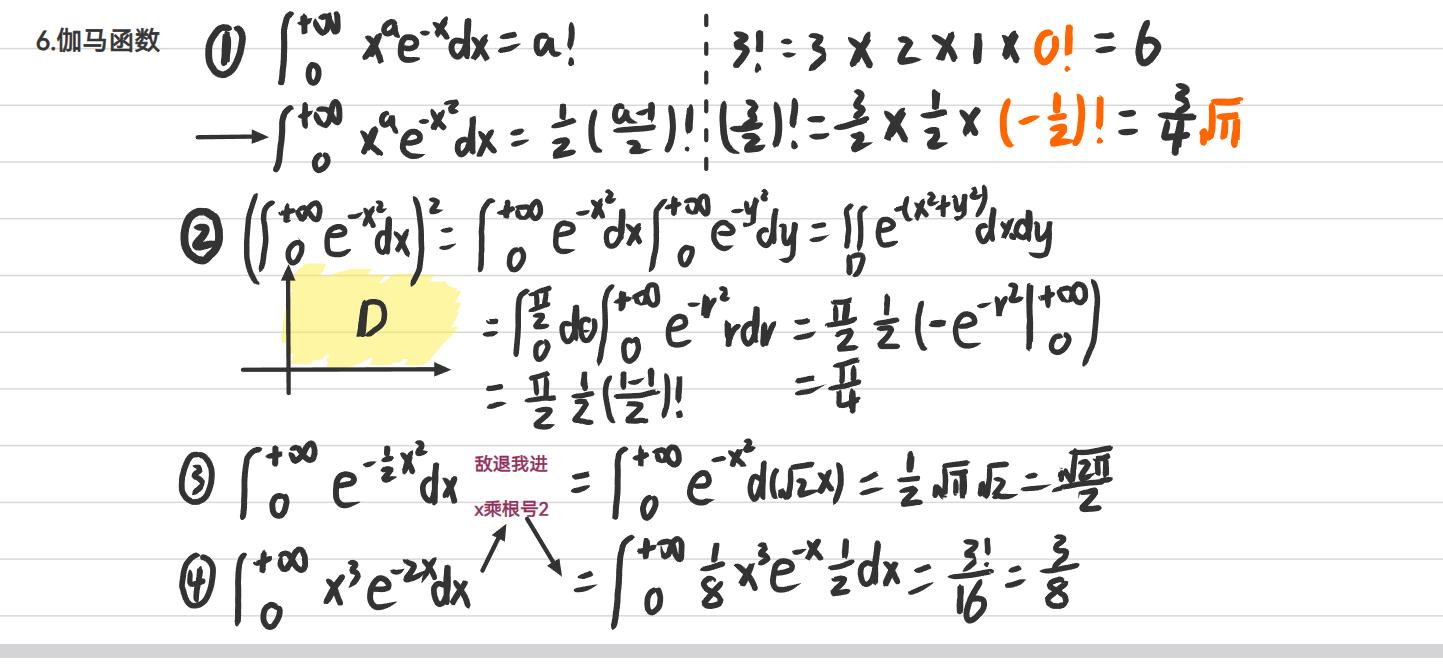 6.伽马函数 ① ∫₀^{+∞} xᵃe^{-x}dx = a! 3! = 3 × 2 × 1 × 0! = 6
→ ∫₀^{+∞} xᵃe^{-x²}dx = 1/2 ((a-1)/2)! (3/2)! = 3/2 × 1/2 × (-1/2)! = 3/4 √π
② (∫₀^{+∞} e^{-x²}dx)² = ∫₀^{+∞} e^{-x²}dx ∫₀^{+∞} e^{-y²}dy = ∬_D e^{-(x²+y²)}dxdy
D = ∫₀^{π/2} dθ ∫₀^{+∞} e^{-r²} rdr = π/2 1/2 (-e^{-r²}|₀^{+∞})
= π/2 1/2 ((1-1)/2)! = π/4
③ ∫₀^{+∞} e^{-1/2 x²}dx 敌退我进 = ∫₀^{+∞} e^{-x²}d(√2x) = 1/2 √π √2 = √(2π)/2
x乘根号2
④ ∫₀^{+∞} x³e^{-2x}dx = ∫₀^{+∞} 1/8 x³e^{-x} 1/2 dx = 3!/16 = 3/8